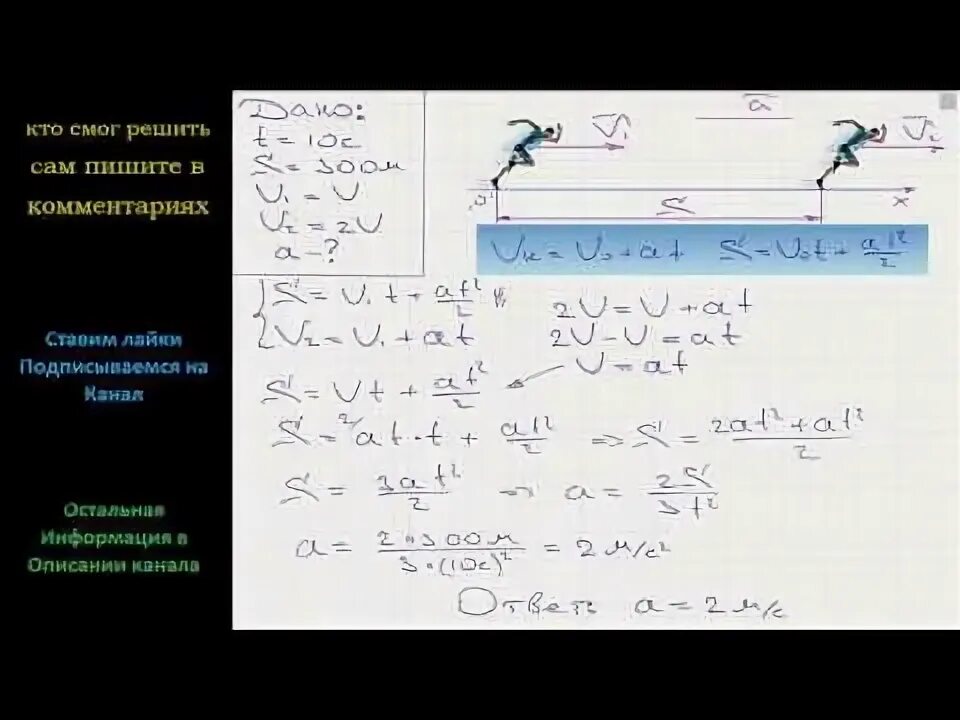 кто смог решить
сам пишите в
комментариях
Ставим лайки
Подписываемся на
Канал
Остальная
Информация в
Описании канала
Дано:
t = 10с
S = 300м
V₁ = V
V₂ = 2V
a - ?
a
V₁
V₂
S
x
Vₖ = V₀ + at S = V₀t + at²/2
S = V₁t + at²/2
V₂ = V₁ + at
2V = V + at
2V - V = at
V = at
S = Vt + at²/2
S = at·t + at²/2 => S = 2at² + at²/2
S = 3at²/2 => a = 2S/3t²
a = 2·300м/3·(10с)² = 2 м/с²
Ответ: a = 2 м/с